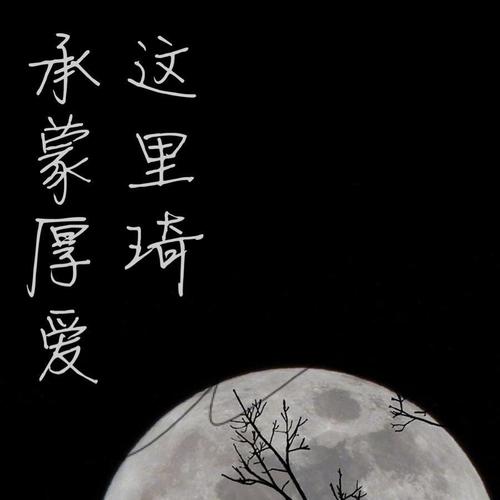 这里琦
承蒙厚爱